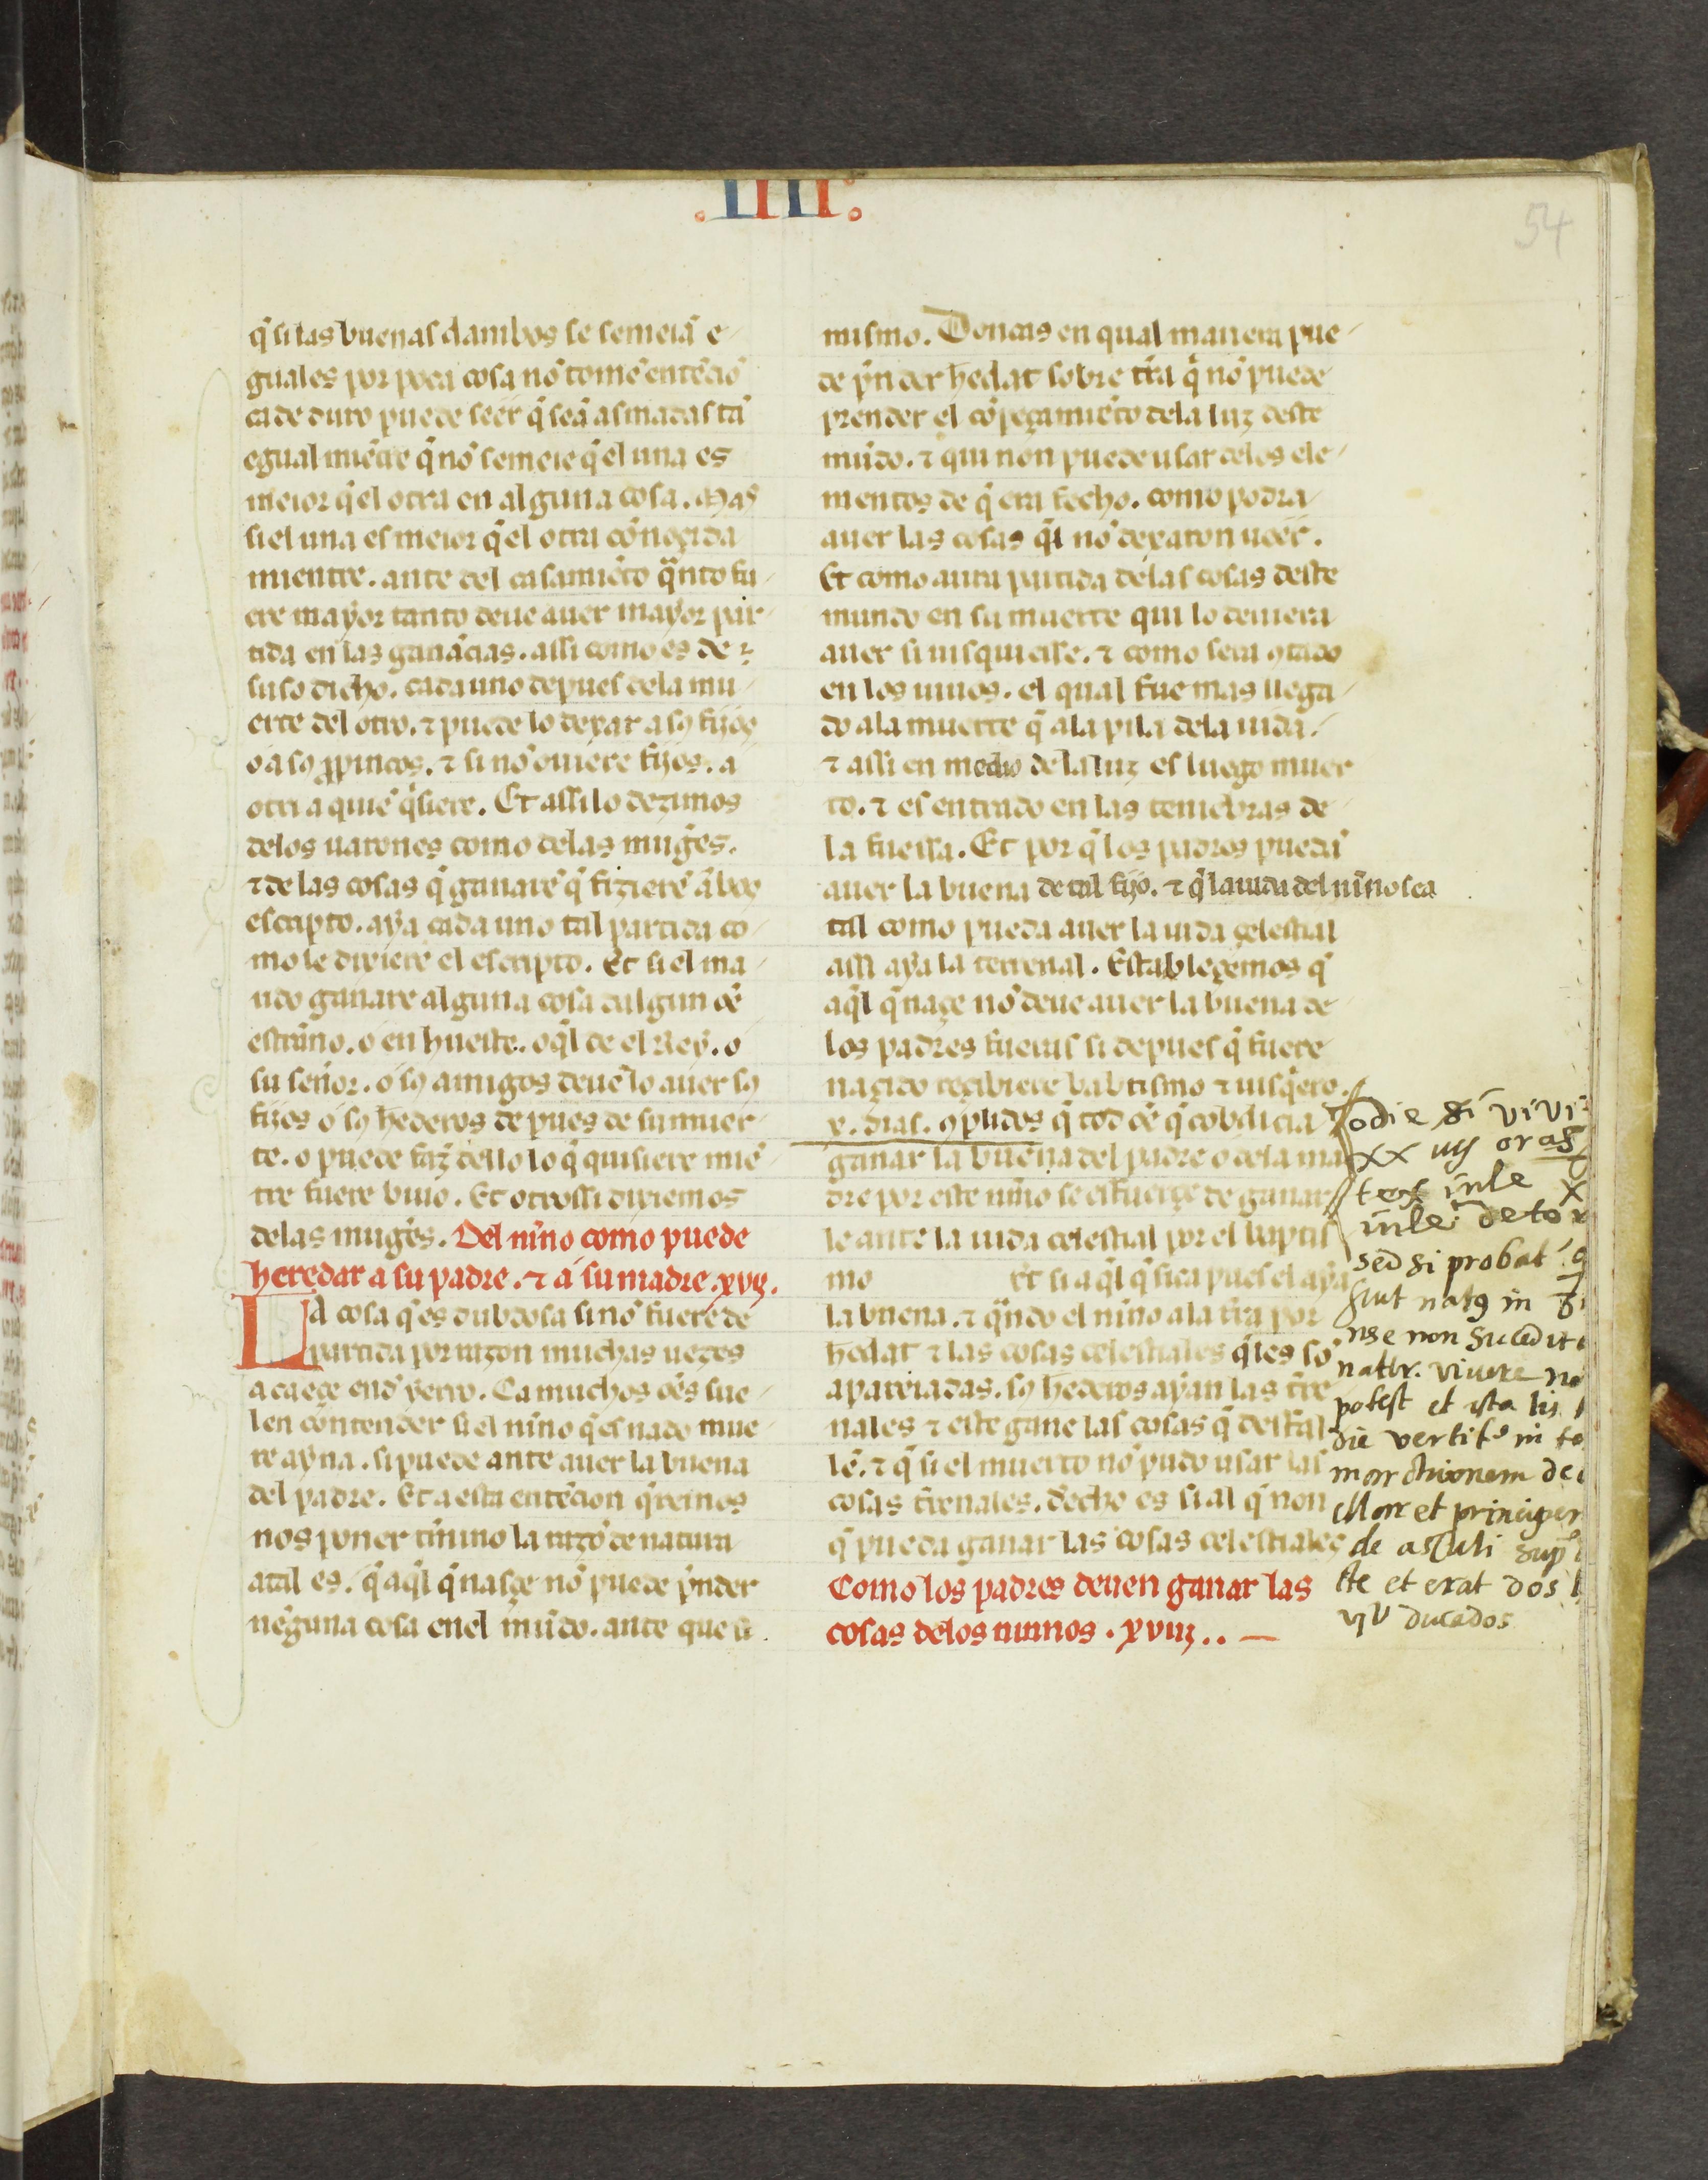 .IIII.
54
q̃ si las buenas dambos se semeiã e-
guales por poca cosa nõ tomẽ entẽciõ
ca de duro puede seer q̃ seã asmadas tã
egual miẽtre q̃ nõ semeie q̃ el una es
meior q̃ el otra en alguna cosa. Mas
si el una es meior q̃ el otra cõnoçida
mientre. ante del casamiẽto q̃nto fu-
ere mayor tanto deue auer mayor par-
tida en las ganãcias. assi como es de
suso dicho. cada uno depues dela mu-
erte del otro. ⁊ puede lo dexar a sos fijos
o a sos ꝓpincos. ⁊ si nõ ouiere fijos. a
otri a quiẽ q̃siere. Et assi lo dezimos
delos uarones como delas mugẽs.
⁊ de las cosas q̃ ganarẽ q̃ fizierẽ ãbos
escripto. aya cada uno tal partida co-
mo le dixiere el escripto. Et si el ma-
rido ganare alguna cosa dalgun oẽ
estraño. o en hueste. o q̃l de el Rey. o
su señor. o sos amigos deuẽ lo auer sos
fijos o sos hederos depues de su muer-
te. o puede faz̃ dello lo q̃ quisiere miẽ-
tre fuere biuo. Et otrossi diziemos
delas mugẽs. Del niño como puede
heredar a su padre. ⁊ a su madre. xvij.
La cosa q̃ es dubdosa si nõ fuere de
partida por razon muchas uezes
acaeçe end yerro. Ca muchos oẽs sue-
len contender si el niño q̃ es nado mue-
re ayna. si puede ante auer la buena
del padre. Et a esta entẽcion q̃remos
nos poner tñino la razõ de natura
atal es. q̃ aq̃l q̃ nasçe nõ puede p̃nder
nẽguna cosa enel mũdo. ante que si
mismo. Doncas en qual manera pue-
de p̃nder hedat sobre tr̃a q̃ nõ puede
prender el cõpeçamiẽto dela luz deste
mũdo. ⁊ qui non puede usar delos ele-
mentos de q̃ era fecho. como podra
auer las cosas q̃l nõ dexaron ueer.
Et como aura partida delas cosas deste
mundo en su muerte qui lo deuiera
auer si uisquiesse. ⁊ como sera ꝯtado
en los uiuos. el qual fue mas llega-
do ala muerte q̃ ala pila dela uida.
⁊ assi en medio dela luz es luego muer
to. ⁊ es entrado en las teniebras de
la fuessa. Et por q̃ los padres puedã
auer la buena de tal fijo. ⁊ q̃ la uida del niño sea
tal como pueda auer la uida çelestial
assi aya la terrenal. Estableçemos q̃
aq̃l q̃ naçe nõ deue auer la buena de
los padres fueras si depues q̃ fuere
naçido reçibiere babtismo ⁊ uisq̃ere
x. dias. ꝯplidos q̃ tod oẽ q̃ cobdicia
ganar la buena del padre o dela ma
dre por este niño se esfuerçe de ganar
le ante la uida celestial por el baptis
mo Et si aq̃l q̃ sica pues el aya
la buena. ⁊ q̃ndo el niño a la tr̃a por
hedat ⁊ las cosas celestiales q̃les sõ
apareiadas. sos hederos ayan las tr̃re
nales ⁊ este gane las cosas q̃ destal
lẽ. ⁊ q̃ si el muerto nõ pudo usar las
cosas tr̃enales. decho es si al q̃ non
q̃ pueda ganar las cosas celestiales
Como los padres deuen ganar las
cosas delos ninnos. xviij..
odie si vivi
xx iiij oras
sed si probat
siut natus in
non sucedit
natur. vivere no
potest et ista lis
die vertitur in
Mor et principer
de asculi sup
ste et erat dos
ducados